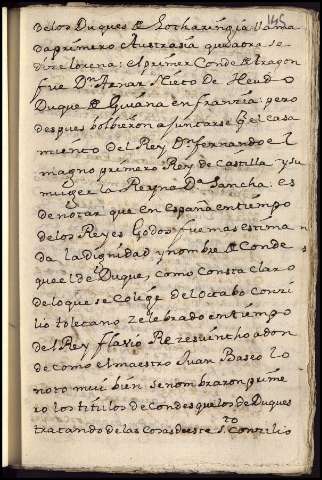 145
de los Duques de Locharingia llama
da primero Austrasia que aora se
dize lorena: el primer Conde de Aragon
fue Dn Aznar Nieto de Heudo
Duque de Guiana en franzia: pero
despues bolbieron a juntarse por el casa
miento del Rey Dn fernando el
magno primero Rey de Castilla y su
muger la Reyna Da Sancha: es
de notar que en España en tiempo
de los Reyes Godos fue mas estima
da la dignidad y nombre de Conde
que el del Duque, como consta claro
de lo que se colige del octabo Conzi
lio toletano zelebrado en tiempo
del Rey flavio Rezesuintho adon
de como el maestro Juan Baseo lo
noto mui bien se nombraron prime
ro los titulos de Condes que los de Duques
tratando de las cosas deeste Sto Conzilio